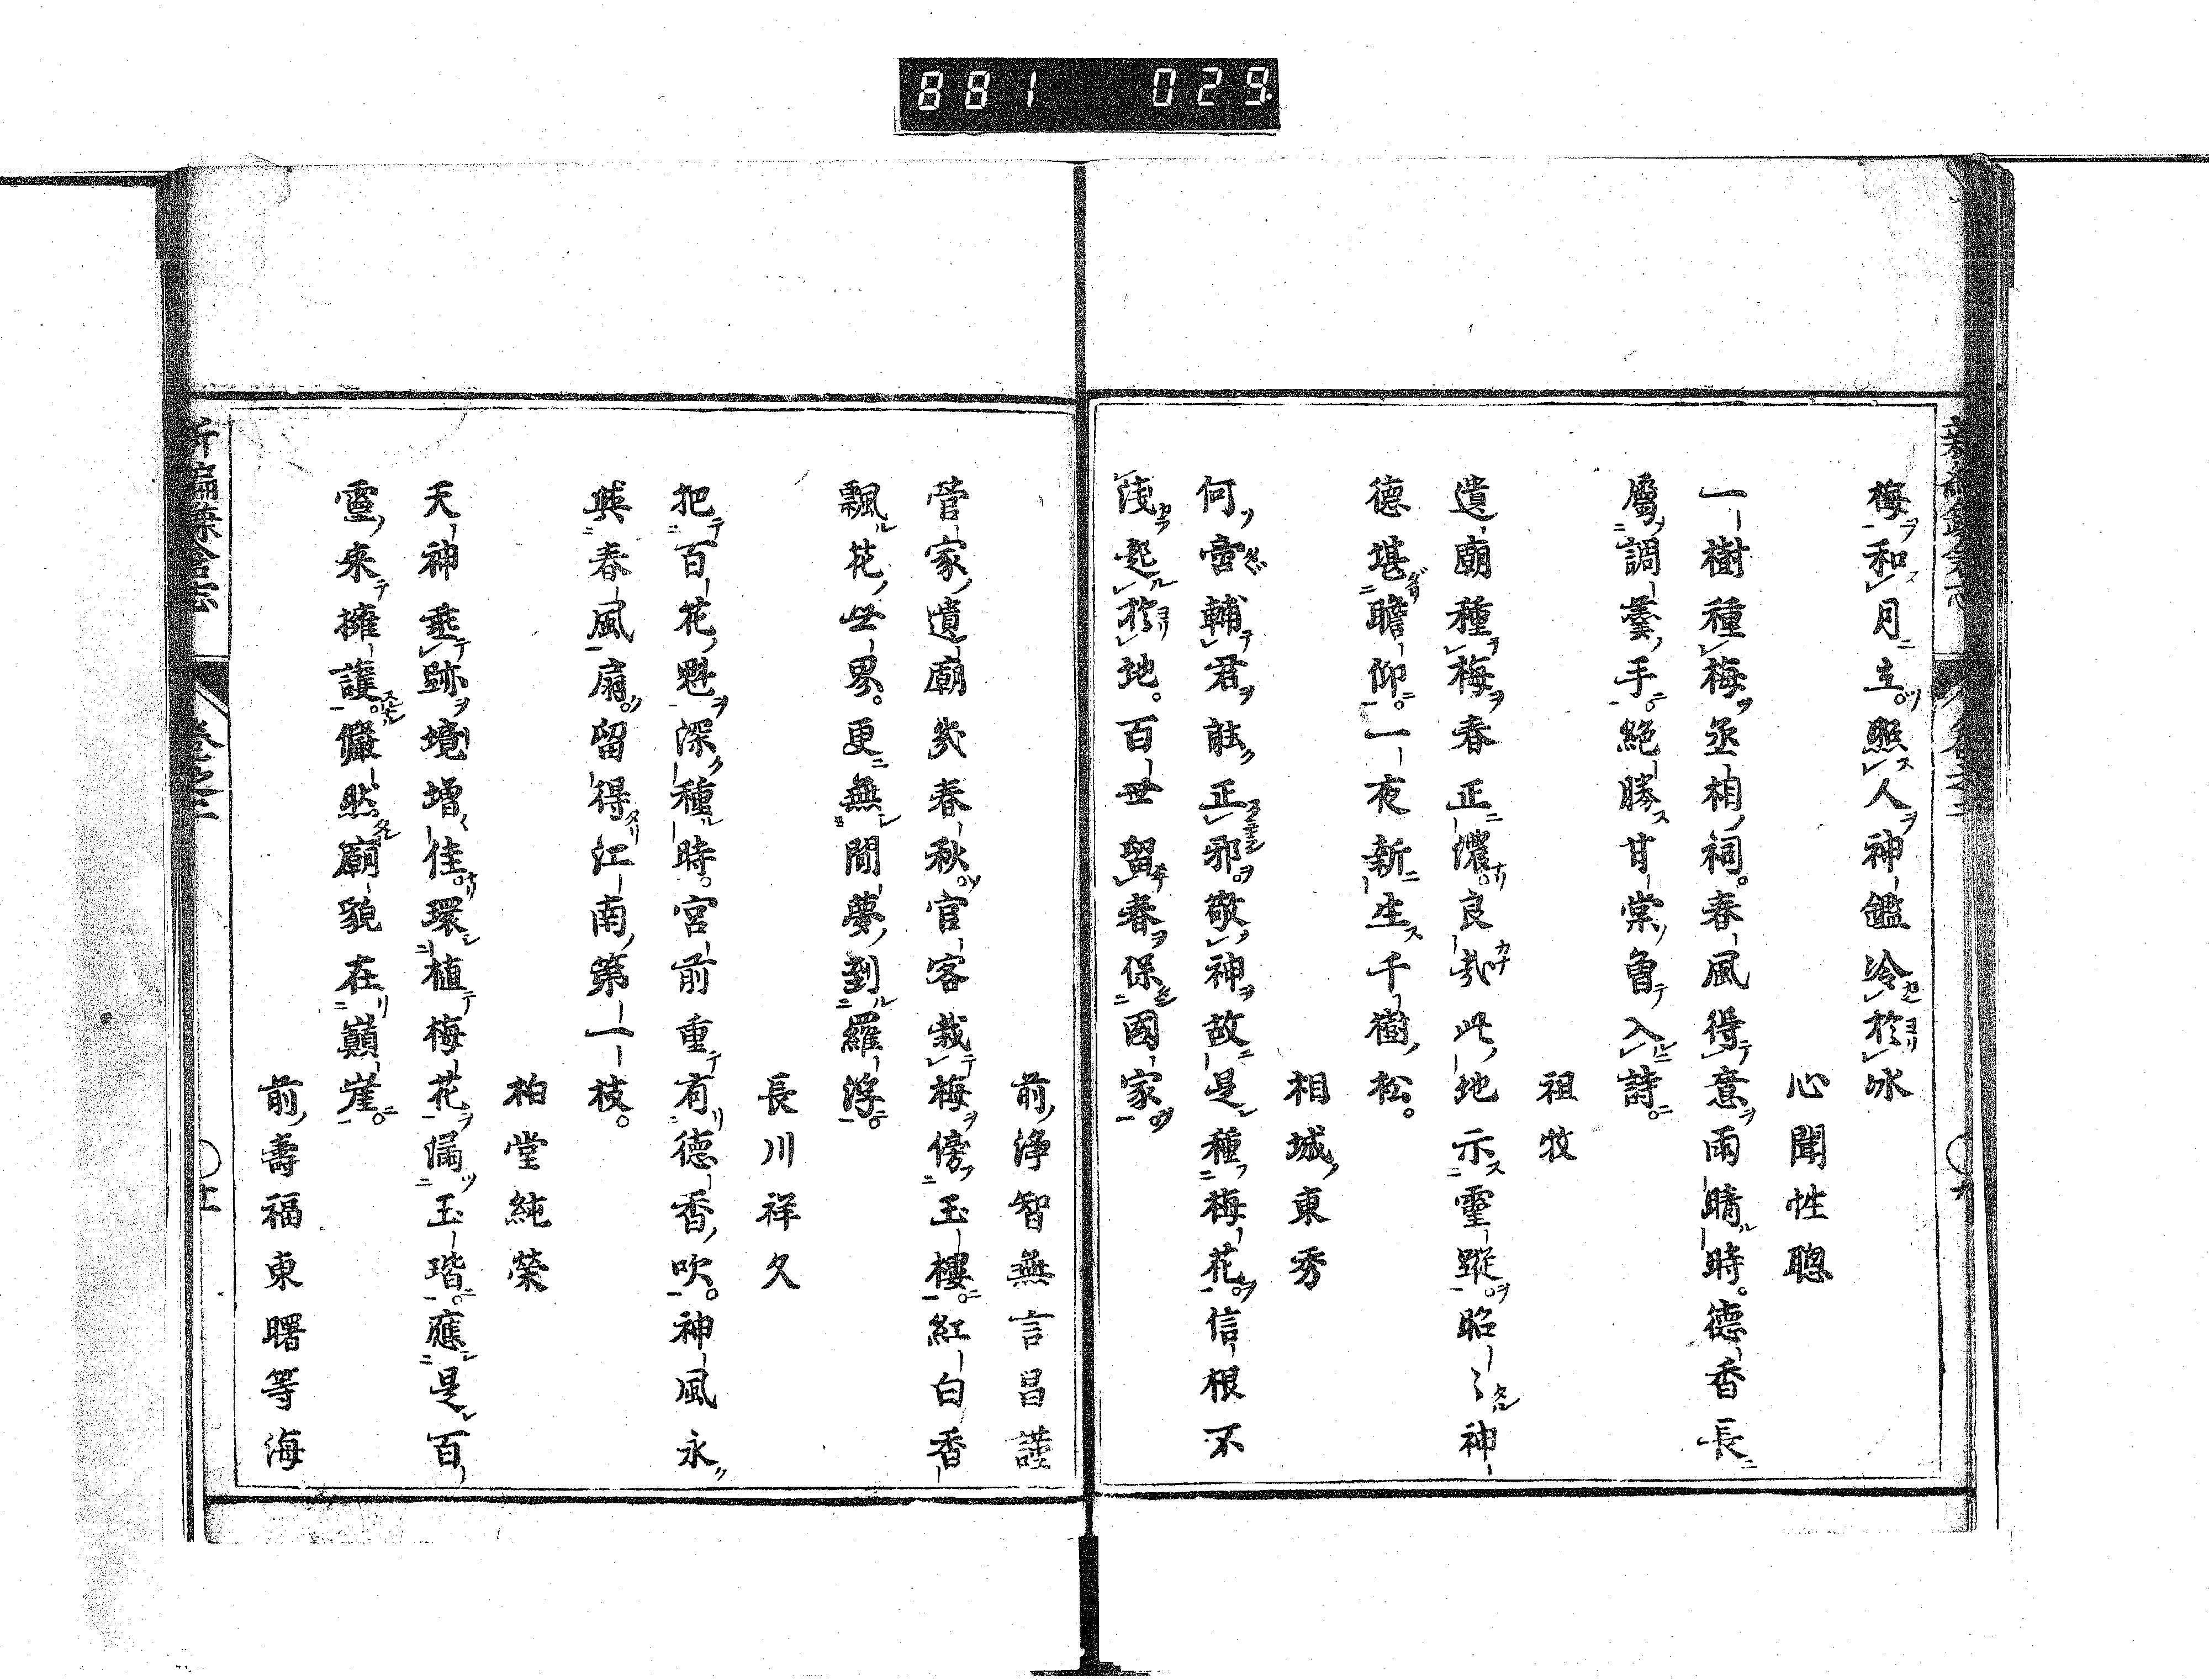 881 029
梅和月立。照人神鑑冷於冰
心聞性聰
一樹種梅丞相祠。春風得意雨晴時。德香長
屬調羹手。絶勝甘棠魯入詩。
祖牧
遺廟種梅春正濃。良哉此地示靈蹤。昭〻神
德堪瞻仰。一夜新生千樹松。
相城東秀
何啻輔君能正邪。敬神故是種梅花。信根不
淺起於地。百世留春保國家。
前淨智無言昌謹
菅家遺廟幾春秋。官客栽梅傍玉樓。紅白香
飄花世界。更無閒夢到羅浮。
長川祥久
把百花魁深種時。宮前重有德香吹。神風永
與春風扇。留得江南第一枝。
柏堂純榮
天神垂跡境增佳。環植梅花滿玉堦。應是百
靈來擁護。儼然廟貌在巔崖。
前壽福東曙等海
新編鎌倉志 卷之二